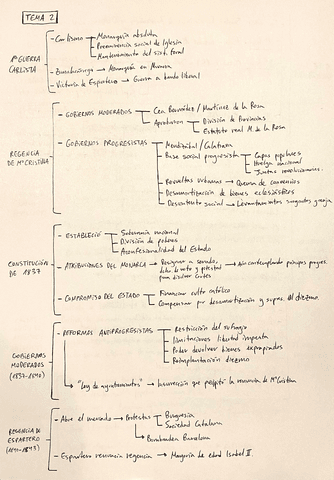 TEMA 2
1ª GUERRA CARLISTA
- Carlismo → Monarquía absoluta
Preeminencia social de Iglesia
Mantenimiento del sist. foral
- Zumalacárregui → en Navarra
- Victoria de Espartero → Guerra a bando liberal
REGENCIA DE Mª CRISTINA
- GOBIERNOS MODERADOS → Cea Bermúdez / Martínez de la Rosa
Aprobaron → División de Provincias
Estatuto real M. de la Rosa
- GOBIERNOS PROGRESISTAS → Mendizábal / Calatrava
Base social progresista → Capas populares
Milicia nacional
Juntas revolucionarias
Revueltas urbanas → Quema de conventos
Desamortización de bienes eclesiásticos
Descontento social → Levantamientos
CONSTITUCIÓN DE 1837
- ESTABLECIÓ → Soberanía nacional
División de poderes
Aconfesionalidad del Estado
- ATRIBUCIONES DEL MONARCA → Designar a senado,
derecho de veto y potestad
para disolver Cortes
→ Aún contemplando principios progres.
- COMPROMISO DEL ESTADO → Financiar culto católico
Compensar por desamortización y supres. del diezmo.
GOBIERNOS MODERADOS (1837-1840)
- REFORMAS ANTIPROGRESISTAS → Restricción del sufragio
Limitaciones libertad imprenta
Poder devolver bienes expropiados
Reimplantación diezmo
"Ley de ayuntamientos" → Insurrección que la renuncia de Mª Cristina
REGENCIA DE ESPARTERO (1841-1843)
- Abre el mercado → Protestas → Burguesía
Sociedad Catalana
→ Bombardean Barcelona
- Espartero renuncia regencia → Mayoría de edad Isabel II.